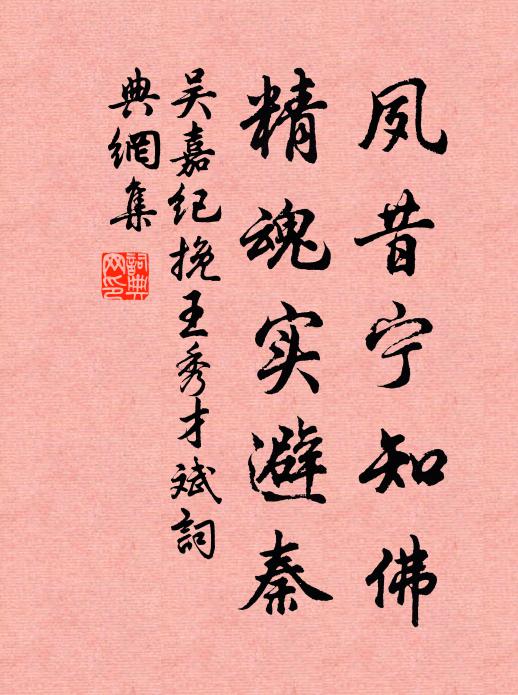 夙昔宁知佛
精魂实避秦
吴嘉纪挽王秀才斌詞
典網集
詞典
网印